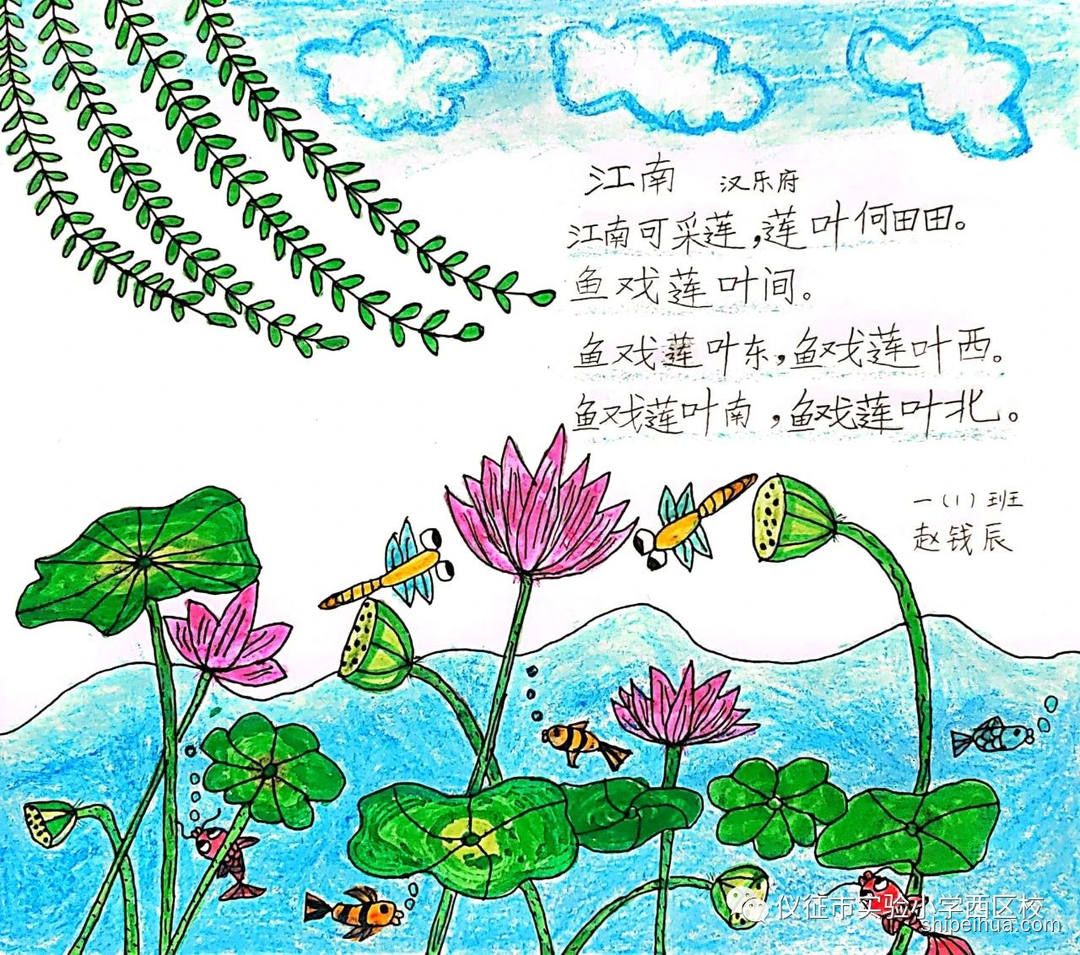 江南 汉乐府
江南可采莲,莲叶何田田。
鱼戏莲叶间。
鱼戏莲叶东,鱼戏莲叶西。
鱼戏莲叶南,鱼戏莲叶北。
一(1)班
赵钱辰
仪征市实验小学西区校
shipeihua.com